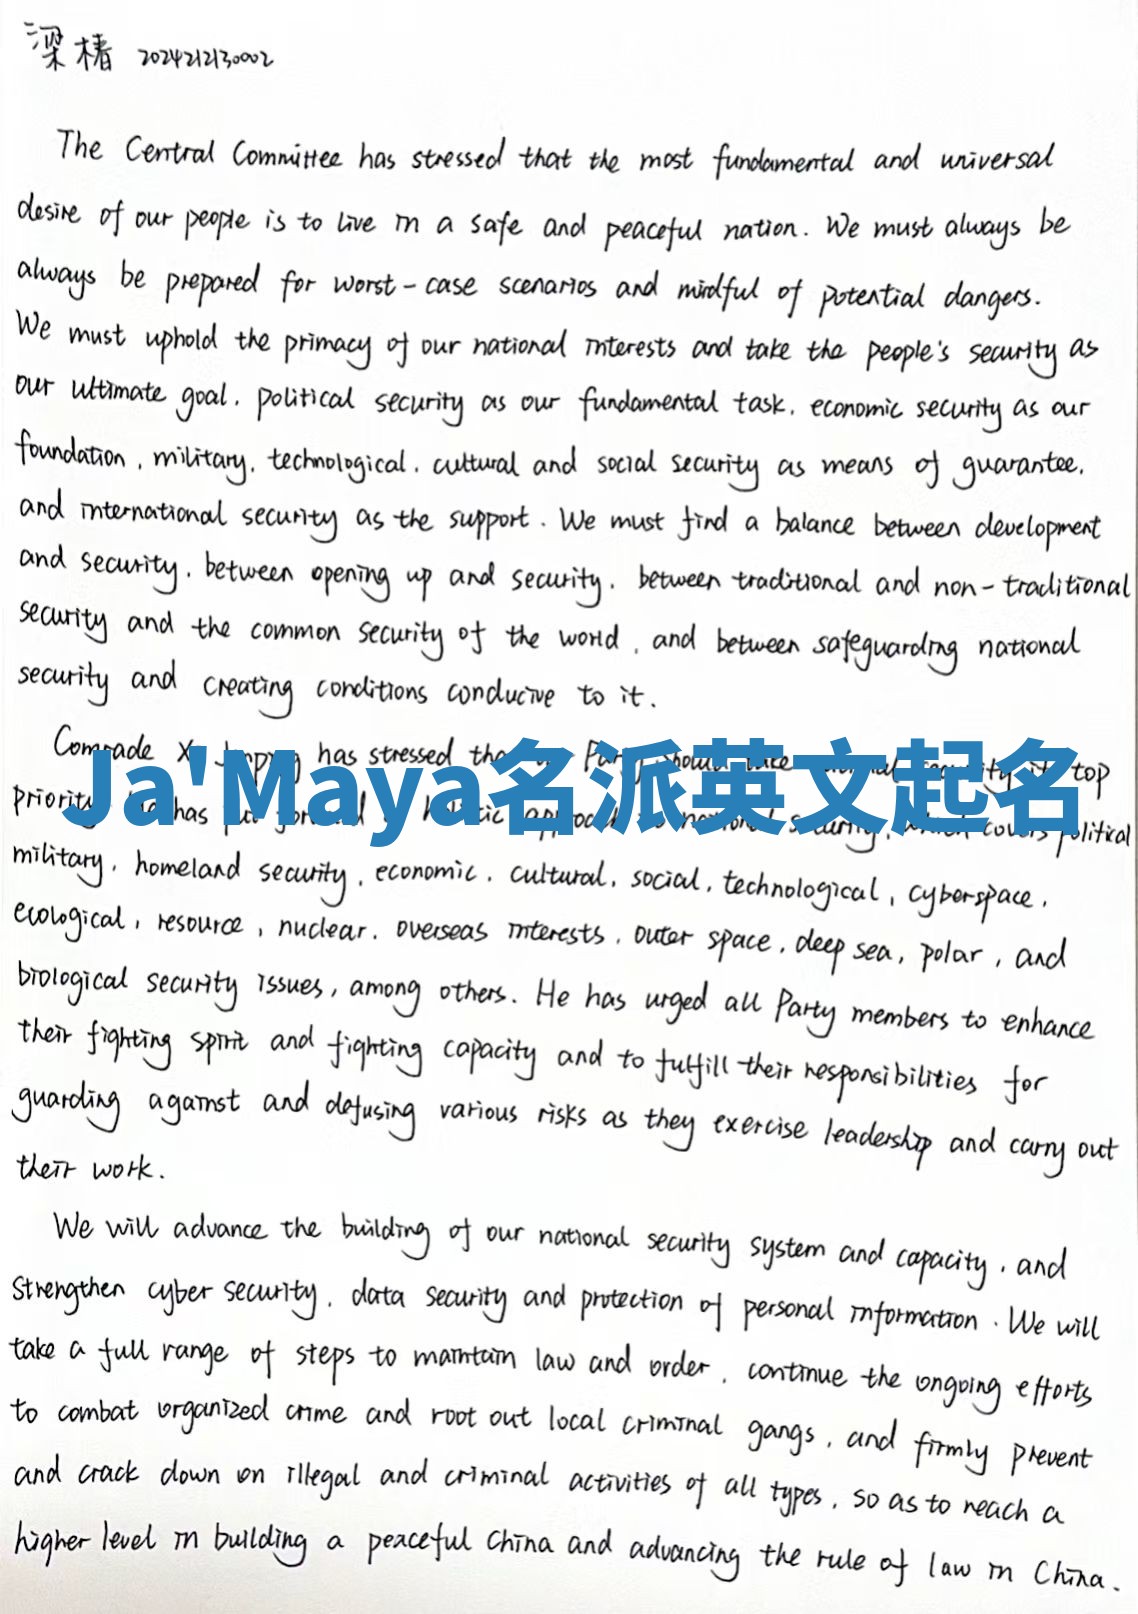 梁椿 2024212130002
The Central Committee has stressed that the most fundamental and universal
desire of our people is to live in a safe and peaceful nation. We must always be
always be prepared for worst-case scenarios and mindful of potential dangers.
We must uphold the primacy of our national interests and take the people's security as
our ultimate goal, political security as our fundamental task, economic security as our
foundation, military, technological, cultural and social security as means of guarantee,
and international security as the support. We must find a balance between development
and security, between opening up and security, between traditional and non-traditional
security and the common security of the world, and between safeguarding national
security and creating conditions conducive to it.
Comrade has stressed top
priority has covers political
Ja'Maya名派英文起名
military, homeland security, economic, cultural, social, technological, cyberspace,
ecological, resource, nuclear, overseas interests, outer space, deep sea, polar, and
biological security issues, among others. He has urged all Party members to enhance
their fighting spirit and fighting capacity and to fulfill their responsibilities for
guarding against and defusing various risks as they exercise leadership and carry out
their work.
We will advance the building of our national security system and capacity, and
strengthen cyber security, data security and protection of personal information. We will
take a full range of steps to maintain law and order, continue the ongoing efforts
to combat organized crime and root out local criminal gangs, and firmly prevent
and crack down on illegal and criminal activities of all types, so as to reach a
higher level in building a peaceful China and advancing the rule of law in China.